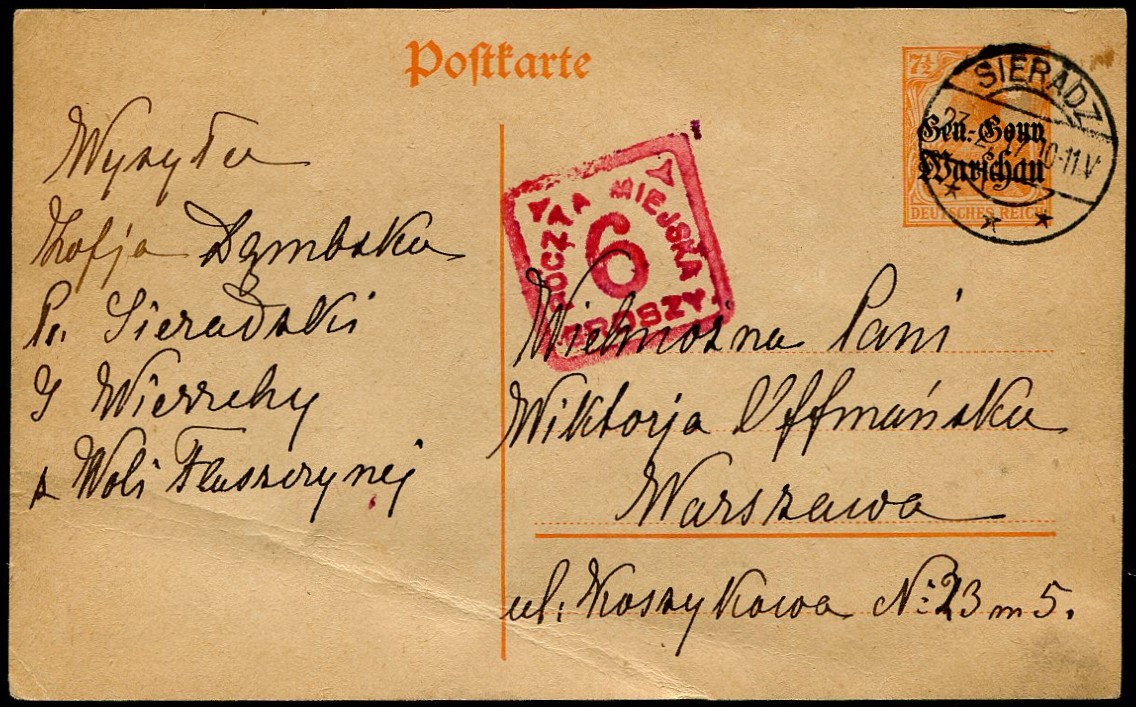 Postkarte
7½
DEUTSCHES REICH
Gen.-Gouv.
Warschau
SIERADZ
10-11.V
POCZTA MIEJSKA
6
GROSZY.
Wysyła
Zofja Dąmbska
Pt. Sieradzki
G Wierzchy
z Woli Flaszczynej
Wielmożna Pani
Wiktorja Uffmańska
Warszawa
ul. Koszykowa № 23 m 5.